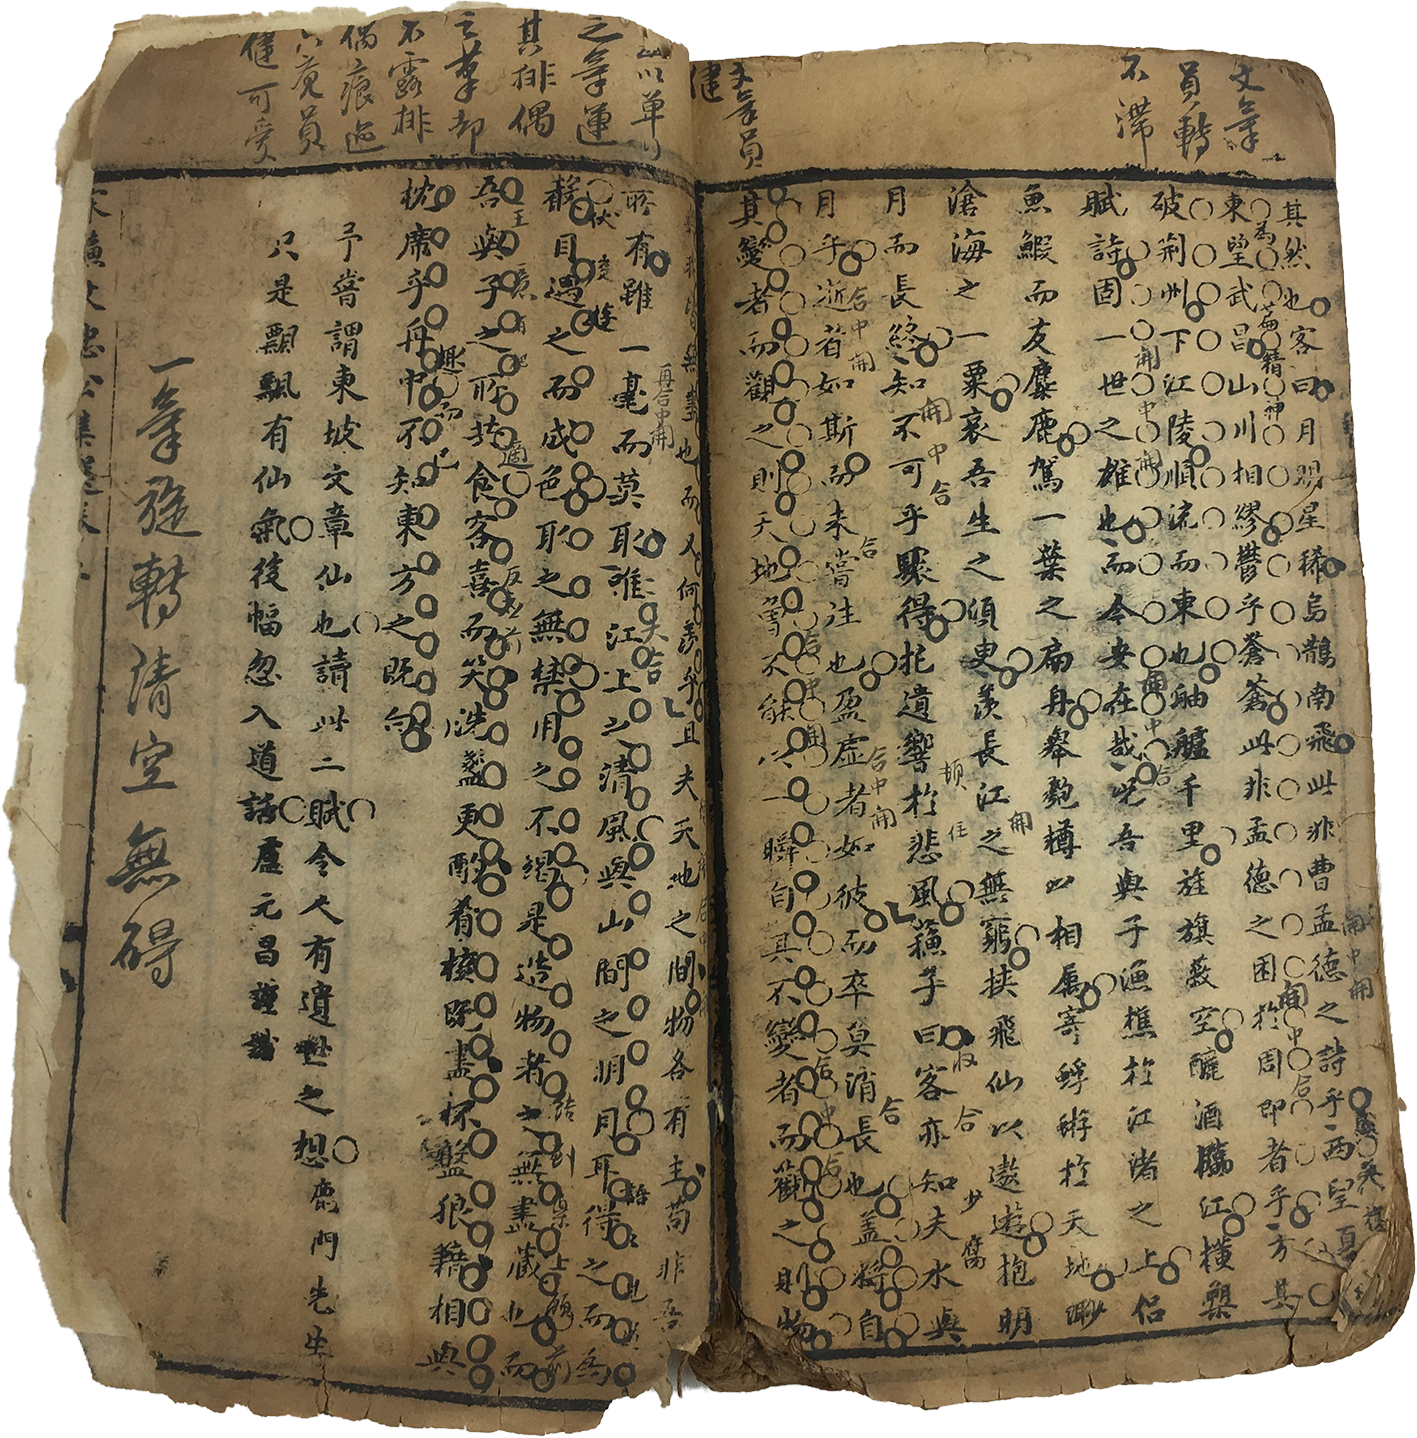 文筆
員轉
不滯
文筆員
健
其然也客曰月明星稀烏鵲南飛此非曹孟德之詩乎西望夏
東望武昌山川相繆鬱乎蒼蒼此非孟德之困於周郎者乎方其
破荆州下江陵順流而東也舳艫千里旌旗蔽空釃酒臨江橫槊
賦詩固一世之雄也而今安在哉况吾與子漁樵於江渚之上侣
魚鰕而友麋鹿駕一葉之扁舟舉匏樽以相屬寄蜉蝣於天地渺
滄海之一粟哀吾生之須臾羨長江之無窮挾飛仙以遨遊抱明
月而長終知不可乎驟得托遺響於悲風蘇子曰客亦知夫水與
月乎逝者如斯而未嘗往也盈虛者如彼而卒莫消長也蓋將自
其變者而觀之則天地曾不能以一瞬自其不變者而觀之則物
以單行
之筆運
其排偶
之筆却
不露排
偶痕迹
員
健可愛
我皆無盡也而又何羨乎且夫天地之間物各有主苟非吾
所有雖一毫而莫取惟江上之清風與山間之明月耳得之而為
聲目遇之而成色取之無禁用之不竭是造物者之無盡藏也而
吾與子之所共食客喜而笑洗盞更酌肴核既盡杯盤狼籍相與
枕席乎舟中不知東方之既白
予嘗謂東坡文章仙也讀此二賦令人有遺世之想鹿門先生
只是飄飄有仙氣後幅忽入道語盧元昌謹識
一筆旋轉清空無碍